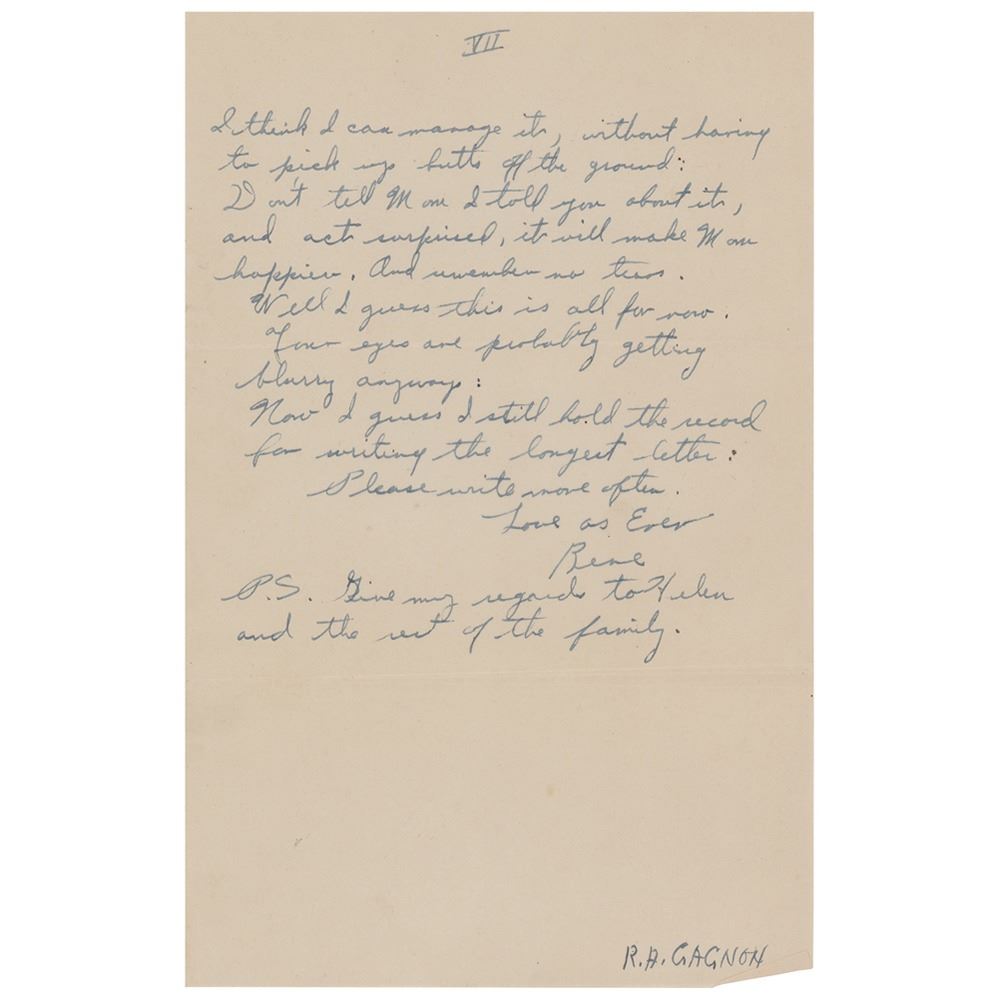 VII
I think I can manage it, without having
to pick up butts off the ground:
Don't tell Mom I told you about it,
and act surprised, it will make Mom
happier. And remember no tears.
Well I guess this is all for now.
Your eyes are probably getting
blurry anyway:
Now I guess I still hold the record
for writing the longest letter:
Please write more often.
Love as Ever
Rene
P.S. Give my regards to Helen
and the rest of the family.
R.A. GAGNON